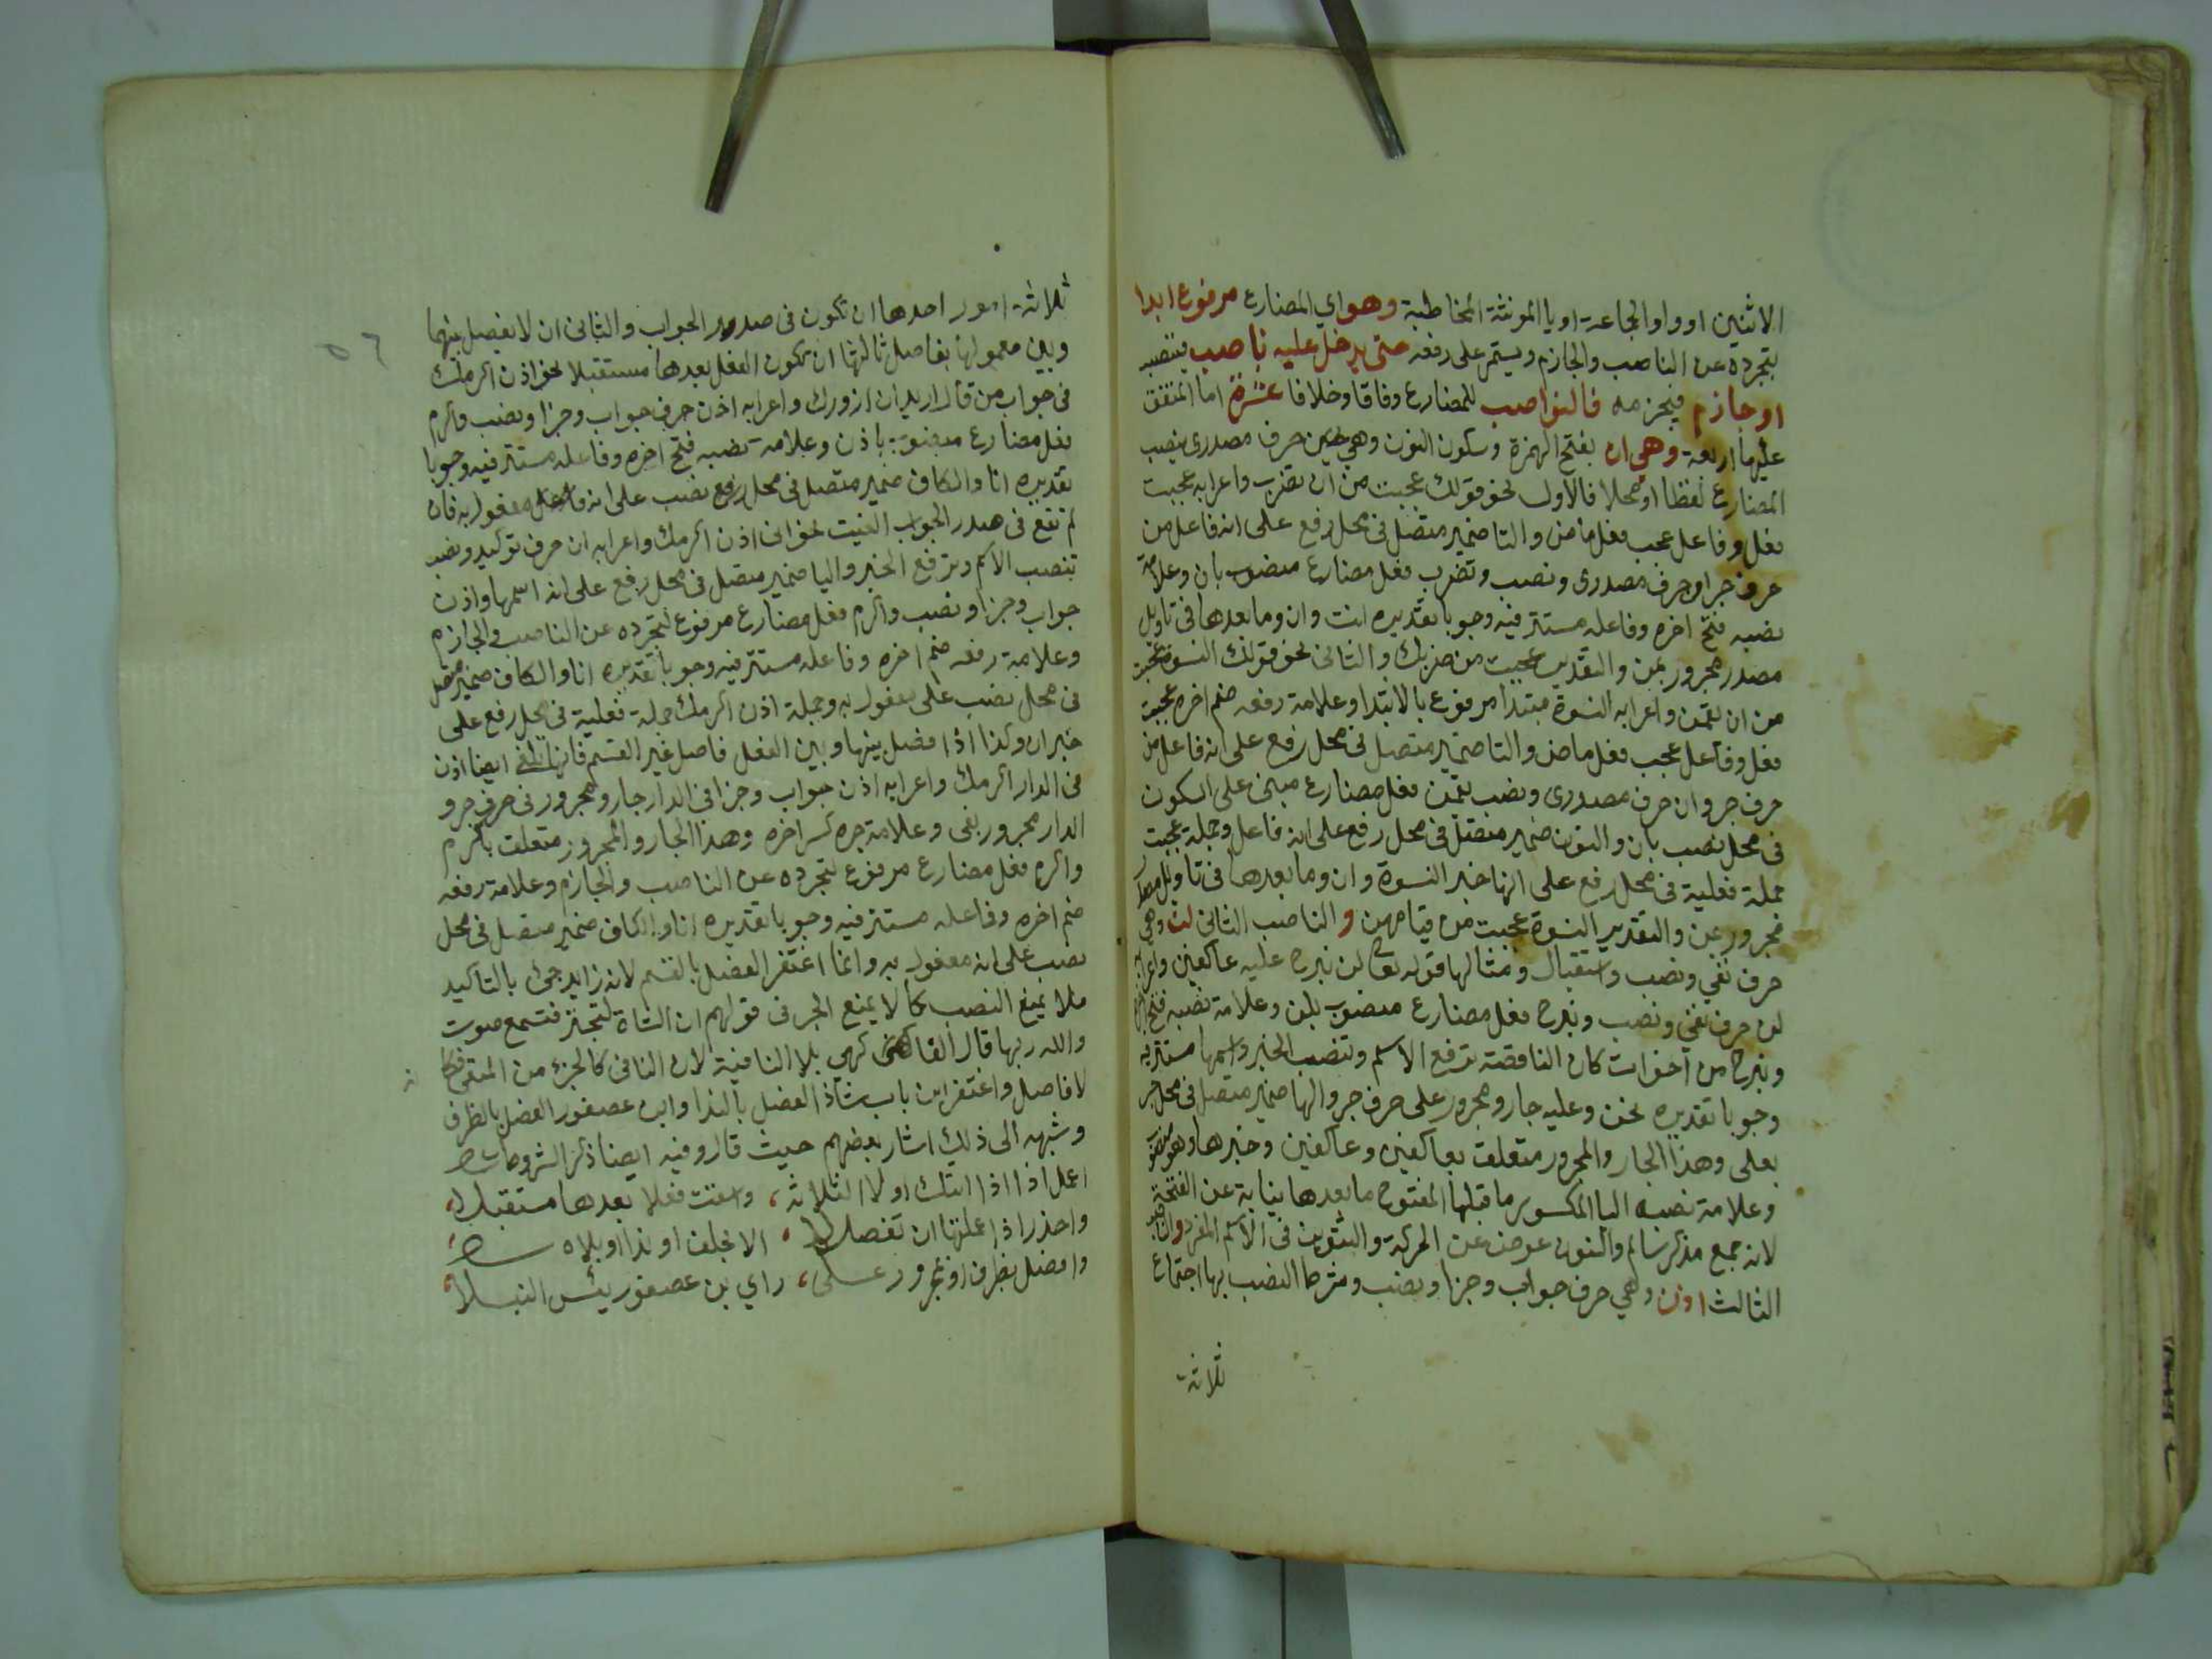 الاثنين او واو الجماعة او يا المونثة المخاطبة وهو اي المضارع مرفوع ابدا
لتجرده عن الناصب والجازم ويستمر على رفعه حتى يدخل عليه ناصب فينصبه
او جازم فيجزمه فالنواصب للمضارع وفاقا وخلافا عشرة اما المتفق
عليها اربعة وهي ان بفتح الهمزة وسكون النون وهي حرف مصدري ينصب
المضارع لفظا او محلا فالاول نحو قولك عجبت من ان تضرب واعرابه عجبت
فعل وفاعل عجب فعل ماض والتا ضمير متصل في محل رفع على انه فاعل من
حرف جر او حرف مصدري ونصب وتضرب فعل مضارع منصوب بان وعلامة
نصبه فتح اخره وفاعله مستتر فيه وجوبا تقديره انت وان وما بعدها في تاويل
مصدر مجرور بمن والتقدير عجبت من ضربك والثاني نحو قولك النسوة عجبت
من ان يقمن واعرابه النسوة مبتدا مرفوع بالابتدا وعلامة رفعه ضم اخره عجبت
فعل وفاعل عجب فعل ماض والتا ضمير متصل في محل رفع على انه فاعل من
حرف جر وان حرف مصدري ونصب يقمن فعل مضارع مبني على السكون
في محل نصب بان والنون ضمير متصل في محل رفع على انه فاعل وجملة عجبت
جملة فعلية في محل رفع على انها خبر النسوة وان وما بعدها في تاويل مصدر
مجرور بمن والتقدير النسوة عجبت من قيامهن والناصب الثاني لن وهي
حرف نفي ونصب واستقبال ومثالها قوله تعالى لن نبرح عليه عاكفين واعرابه
لن حرف نفي ونصب ونبرح فعل مضارع منصوب بلن وعلامة نصبه فتح اخره
ونبرح من اخوات كان الناقصة ترفع الاسم وتنصب الخبر واسمها مستتر فيه
وجوبا تقديره نحن وعليه جار ومجرور على حرف جر والها ضمير متصل في محل جر
بعلى وهذا الجار والمجرور متعلق بعاكفين وعاكفين وخبرها وهو منصوب
وعلامة نصبه اليا المكسور ما قبلها المفتوح ما بعدها نيابة عن الفتحة
لانه جمع مذكر سالم والنون عوض عن الحركة والتنوين في الاسم المفرد والناصب
الثالث اذن وهي حرف جواب وجزا ونصب وشرط النصب بها اجتماع
ثلاثة
ثلاثة امور احدها ان تكون في صدر الجواب والثاني ان لا يفصل بينها
وبين معمولها بفاصل ثالثها ان يكون الفعل بعدها مستقبلا نحو اذن اكرمك
في جواب من قال اريد ان ازورك واعرابه اذن حرف جواب وجزا ونصب واكرم
فعل مضارع منصوب باذن وعلامة نصبه فتح اخره وفاعله مستتر فيه وجوبا
تقديره انا والكاف ضمير متصل في محل نصب على انه مفعول به فان
لم تقع في صدر الجواب الغيت نحو اني اذن اكرمك واعرابه ان حرف توكيد ونصب
تنصب الاسم وترفع الخبر واليا ضمير متصل في محل رفع على انه اسمها واذن
جواب وجزا ونصب واكرم فعل مضارع مرفوع لتجرده عن الناصب والجازم
وعلامة رفعه ضم اخره وفاعله مستتر فيه وجوبا تقديره انا والكاف ضمير متصل
في محل نصب على مفعول به وجملة اذن اكرمك جملة فعلية في محل رفع على
خبر ان وكذا اذا فصل بينها وبين الفعل فاصل غير القسم فانها تلغى ايضا اذن
في الدار اكرمك واعرابه اذن جواب وجزا في الدار جار ومجرور في حرف جر و
الدار مجرور بفي وعلامة جره كسر اخره وهذا الجار والمجرور متعلق باكرم
واكرم فعل مضارع مرفوع لتجرده عن الناصب والجازم وعلامة رفعه
ضم اخره وفاعله مستتر فيه وجوبا تقديره انا والكاف ضمير متصل في محل
نصب على انه مفعول به وانما اغتفر الفصل بالقسم لانه زايد جئ بالتاكيد
فلا يمنع النصب كما لا يمنع الجر في قولهم ان الشاة لتجتر فتسمع صوت
والله ربها قال الفاكهي بلا النافية لان النافي كالجزء من المنفي فكانه
لا فاصل واغتفر ابن باب شاذ الفصل بالندا وابن عصفور الفصل بالظرف
وشبهه الى ذلك اشار بعضهم حيث قال وفيه ايضا ذكر الشروط
اعمل اذا اذا اتتك اولا الثلاثة، وسقت فعلا بعدها مستقبلا،
واحذر اذا اعملتها ان تفصلا، الا بحلف او ندا او بلا
وافصل بظرف او بمجرور على، راي بن عصفور رئيس النبلا،
٥٦